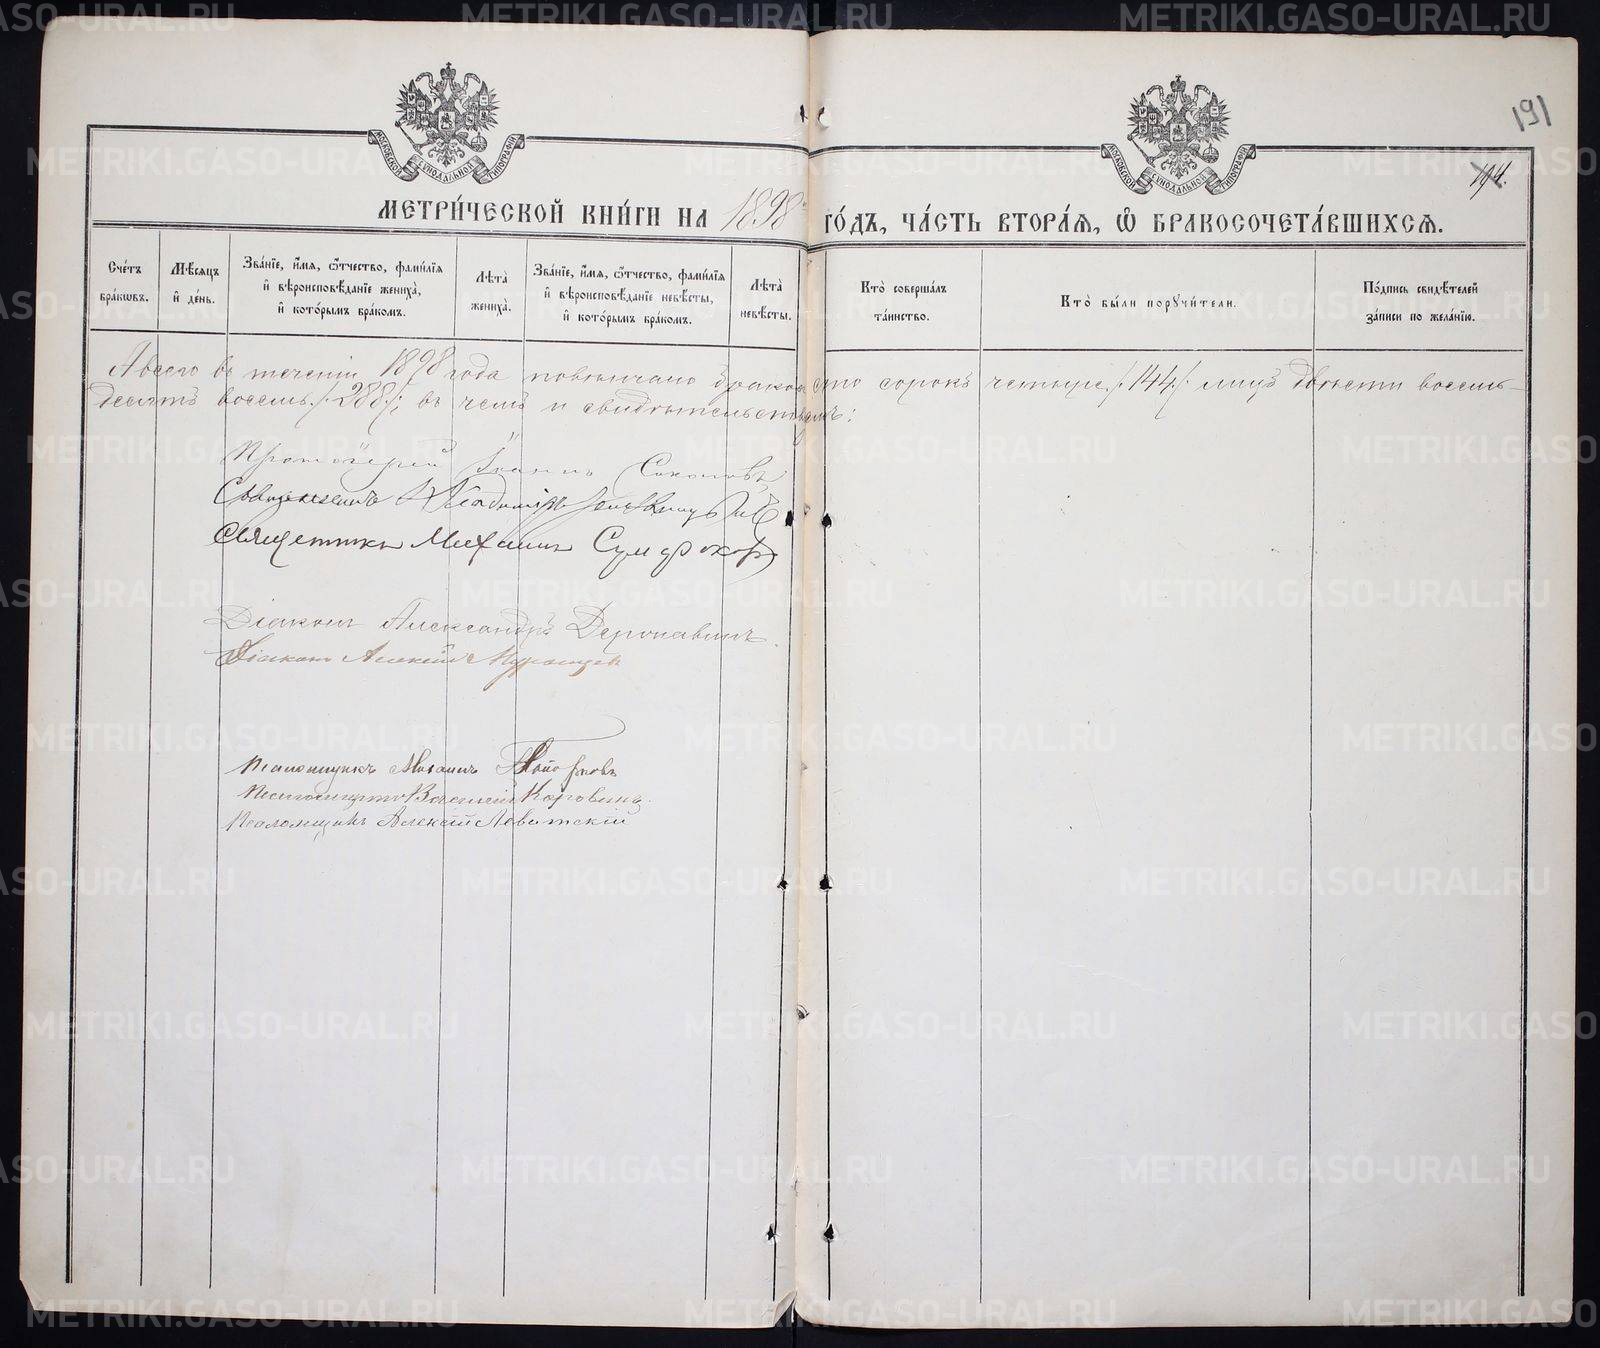 191
194.
МОСКОВСКОЙ СѴНОДАЛЬНОЙ ТИПОГРАФІИ
МОСКОВСКОЙ СѴНОДАЛЬНОЙ ТИПОГРАФІИ
МЕТРИ́ЧЕСКОЙ КНИ́ГИ НА 1898 ГО́ДЪ, ЧА́СТЬ ВТОРА́Я, Ѽ БРАКОСОЧЕТА́ВШИХСЯ.
Сче́тъ бра́ковъ.
Мѣсяцъ и де́нь.
Зва́ніе, и́мя, ѻ́тчество, фами́лія и вѣроисповѣ́даніе жениха̀, и кото́рымъ бра́комъ.
Лѣта̀ жениха̀.
Зва́ніе, и́мя, ѻ́тчество, фами́лія и вѣроисповѣ́даніе невѣ́сты, и кото́рымъ бра́комъ.
Лѣта̀ невѣ́сты.
Кто̀ соверша́лъ та́инство.
Кто̀ бы́ли поручи́тели.
По́дпись свидѣ́телей за́писи по жела́нію.
А всего въ теченіи 1898 года повѣнчано браковъ сто сорокъ четыре /144/ лицъ двѣсти восемь-
десятъ восемь /288/; въ чемъ и свидѣтельствуемъ:
Протоіерей Іоаннъ Соколовъ
Священникъ Владиміръ
Священникъ Михаилъ
Діаконъ Александръ
Діаконъ Алексій
Псаломщикъ Михаилъ
Псаломщикъ Василій Коровинъ.
Псаломщикъ Алексій Левитскій
METRIKI.GASO-URAL.RU